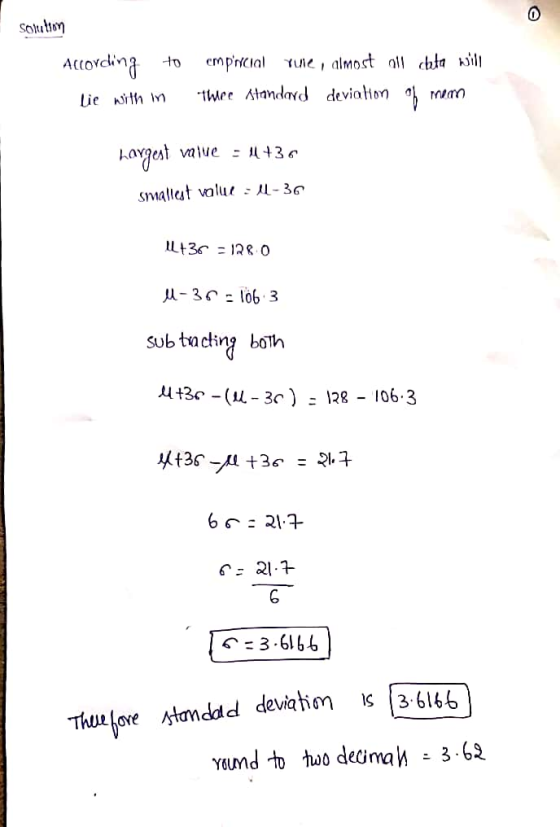 ①
Solution
According to empiricial rule, almost all data will
lie with in three standard deviation of mean
Largest value = μ+3σ
smallest value = μ-3σ
μ+3σ = 128.0
μ-3σ = 106.3
subtracting both
μ+3σ-(μ-3σ) = 128 - 106.3
μ+3σ-μ+3σ = 21.7
6σ = 21.7
σ = 21.7
6
σ = 3.6166
Therefore standard deviation is 3.6166
round to two decimals = 3.62